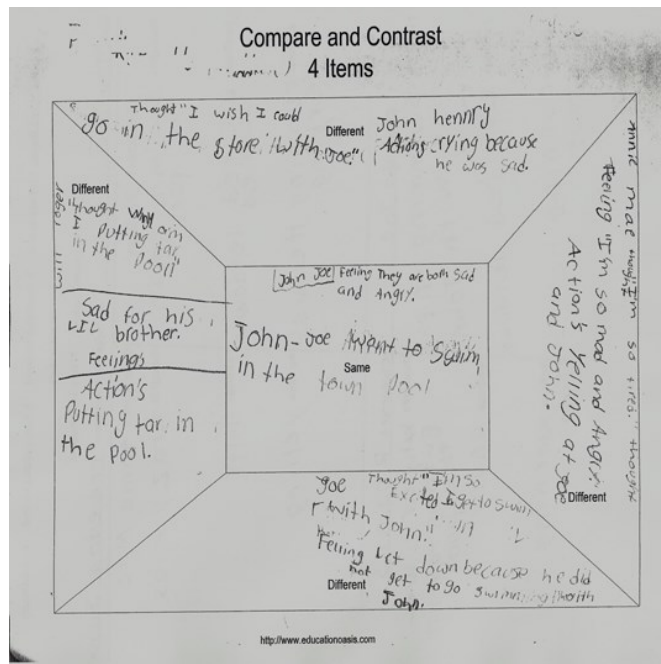 Compare and Contrast
4 Items
Thought "I wish I could
go in the store with Joe."
Different
John hennry
Actions crying because
he was sad.
Different
"thought Why am
I Putting tar
in the Pool"
will
Sad for his
LIL brother.
Feelings
Action's
Putting tar in
the pool.
John Joe Feeling They are both Sad
and Angry.
John-Joe want to Swim
in the town Pool
Same
annie mae thought I'm so tired." thought
Feeling "I'm so mad and Angry.
Action's Yelling at Joe
and John.
Different
Joe Thought "I'm so
Excited I get to swim
with John."
Feeling Let down because he did
not get to go swimming with
Different
John.
http://www.educationoasis.com